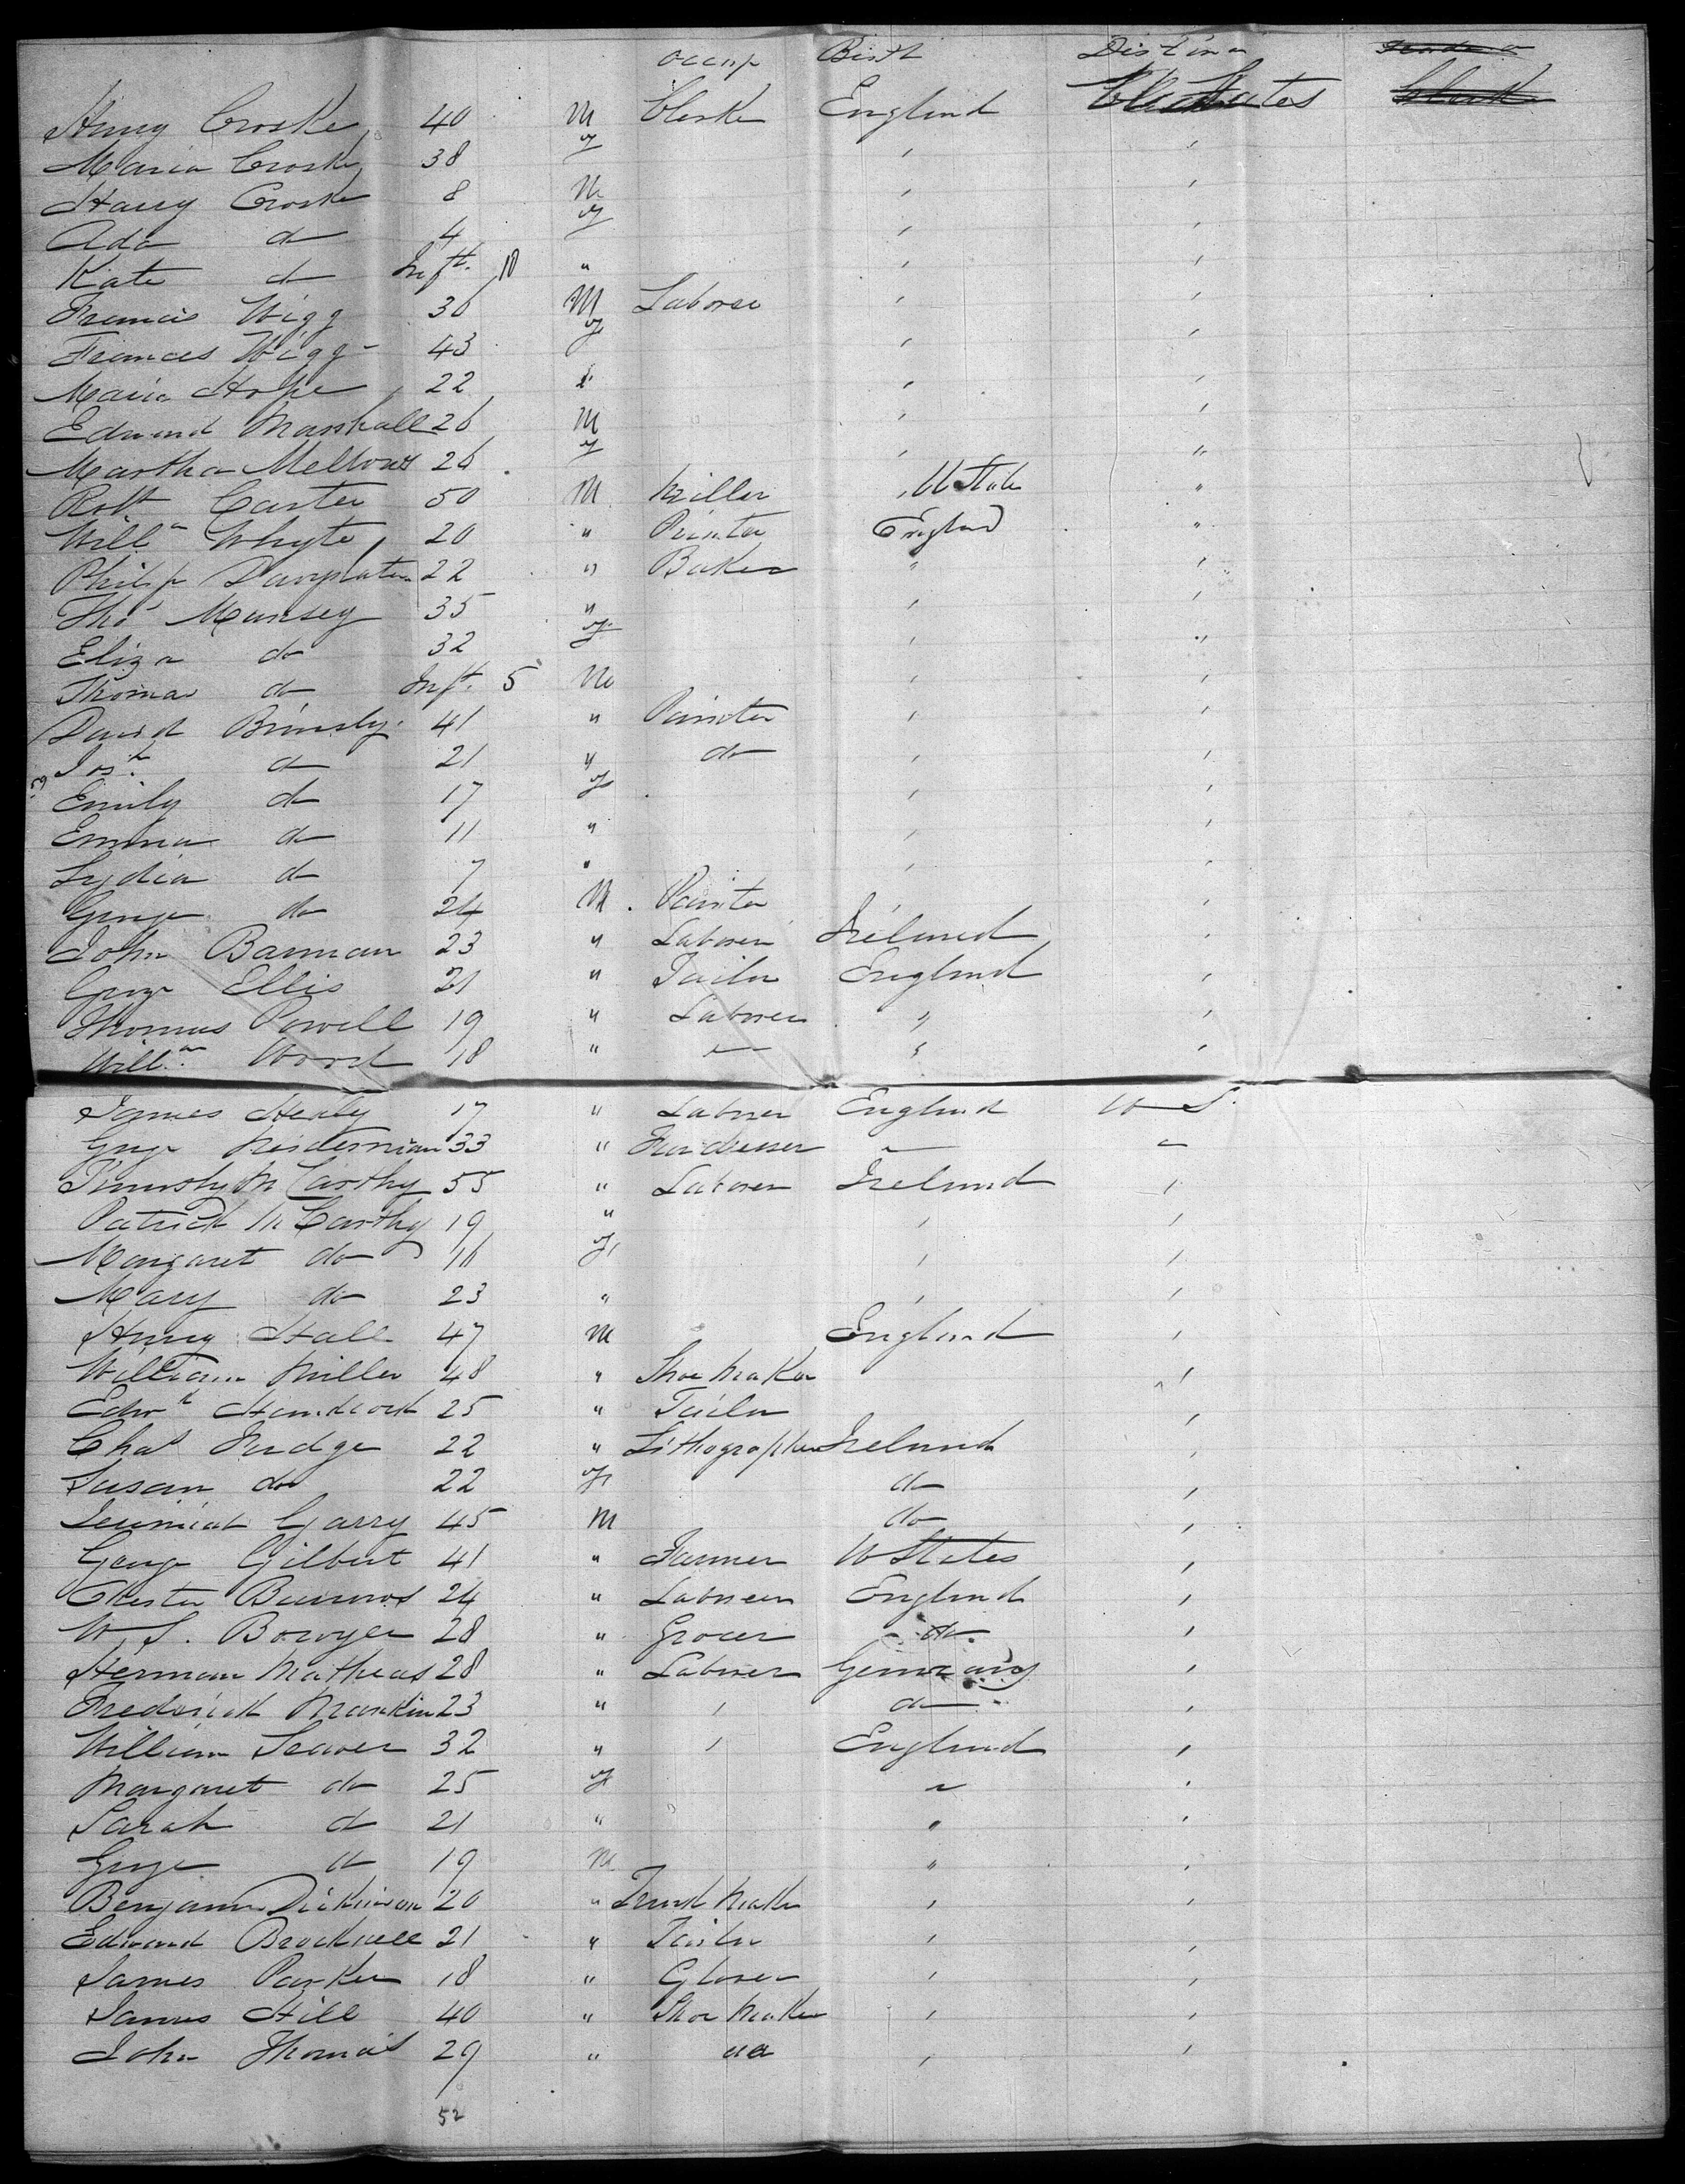 occup Birth Distina
Henry Croske 40 M Clerk England U States
Maria Croske 38 f " "
Harry Croske 8 M " "
Ada do 4 f " "
Kate do Inft. 10 " " "
Francis Wigg 30 M Laborer " "
Frances Wigg 43 f " "
Maria Hope 22 " " "
Edward Marshall 26 M " "
Martha Mellows 26 f " "
Robt Carter 50 M Miller U State "
Willm Whyte 20 " Painter England "
Philip 22 " Baker " "
Tho Munsey 35 " " "
Eliza do 32 f " "
Thomas do Inft. 5 M " "
David Brinsly 41 " Painter " "
Josh do 21 " do " "
Emily do 17 f " "
Emma do 11 " " "
Lydia do 7 " " "
George do 24 M Painter " "
John Barman 23 " Laborer Ireland "
George Ellis 21 " Tailor England "
Thomas Powell 19 " Laborer " "
Willm Wood 18 " " " "
James Healy 17 " Laborer England U S
George 33 " " "
Timothy McCarthy 55 " Laborer Ireland "
Patrick McCarthy 19 " " "
Margaret do 16 f " "
Mary do 23 " " "
Henry Hall 47 M England "
William Miller 48 " Shoe Maker "
Edwd 25 " Tailor "
Chas Judge 22 " Lithographer Ireland "
Susan do 22 f do "
Jeremiah Garry 45 M do "
George Gilbert 41 " Farmer U States "
Chester Burrows 24 " Laborer England "
W. S. Bowyer 28 " Grocer do "
Herman Mathews 28 " Laborer Germany "
Frederick Mankin 23 " " do "
William Seaver 32 " " England "
Margaret do 25 f " "
Sarah do 21 " " "
George do 19 M " "
Benjamin Dickinson 20 " Trunk Maker " "
Edward Brockwell 21 " Tailor " "
James Parker 18 " Glover " "
James Hill 40 " Shoe Maker " "
John Thomas 29 " do " "
52